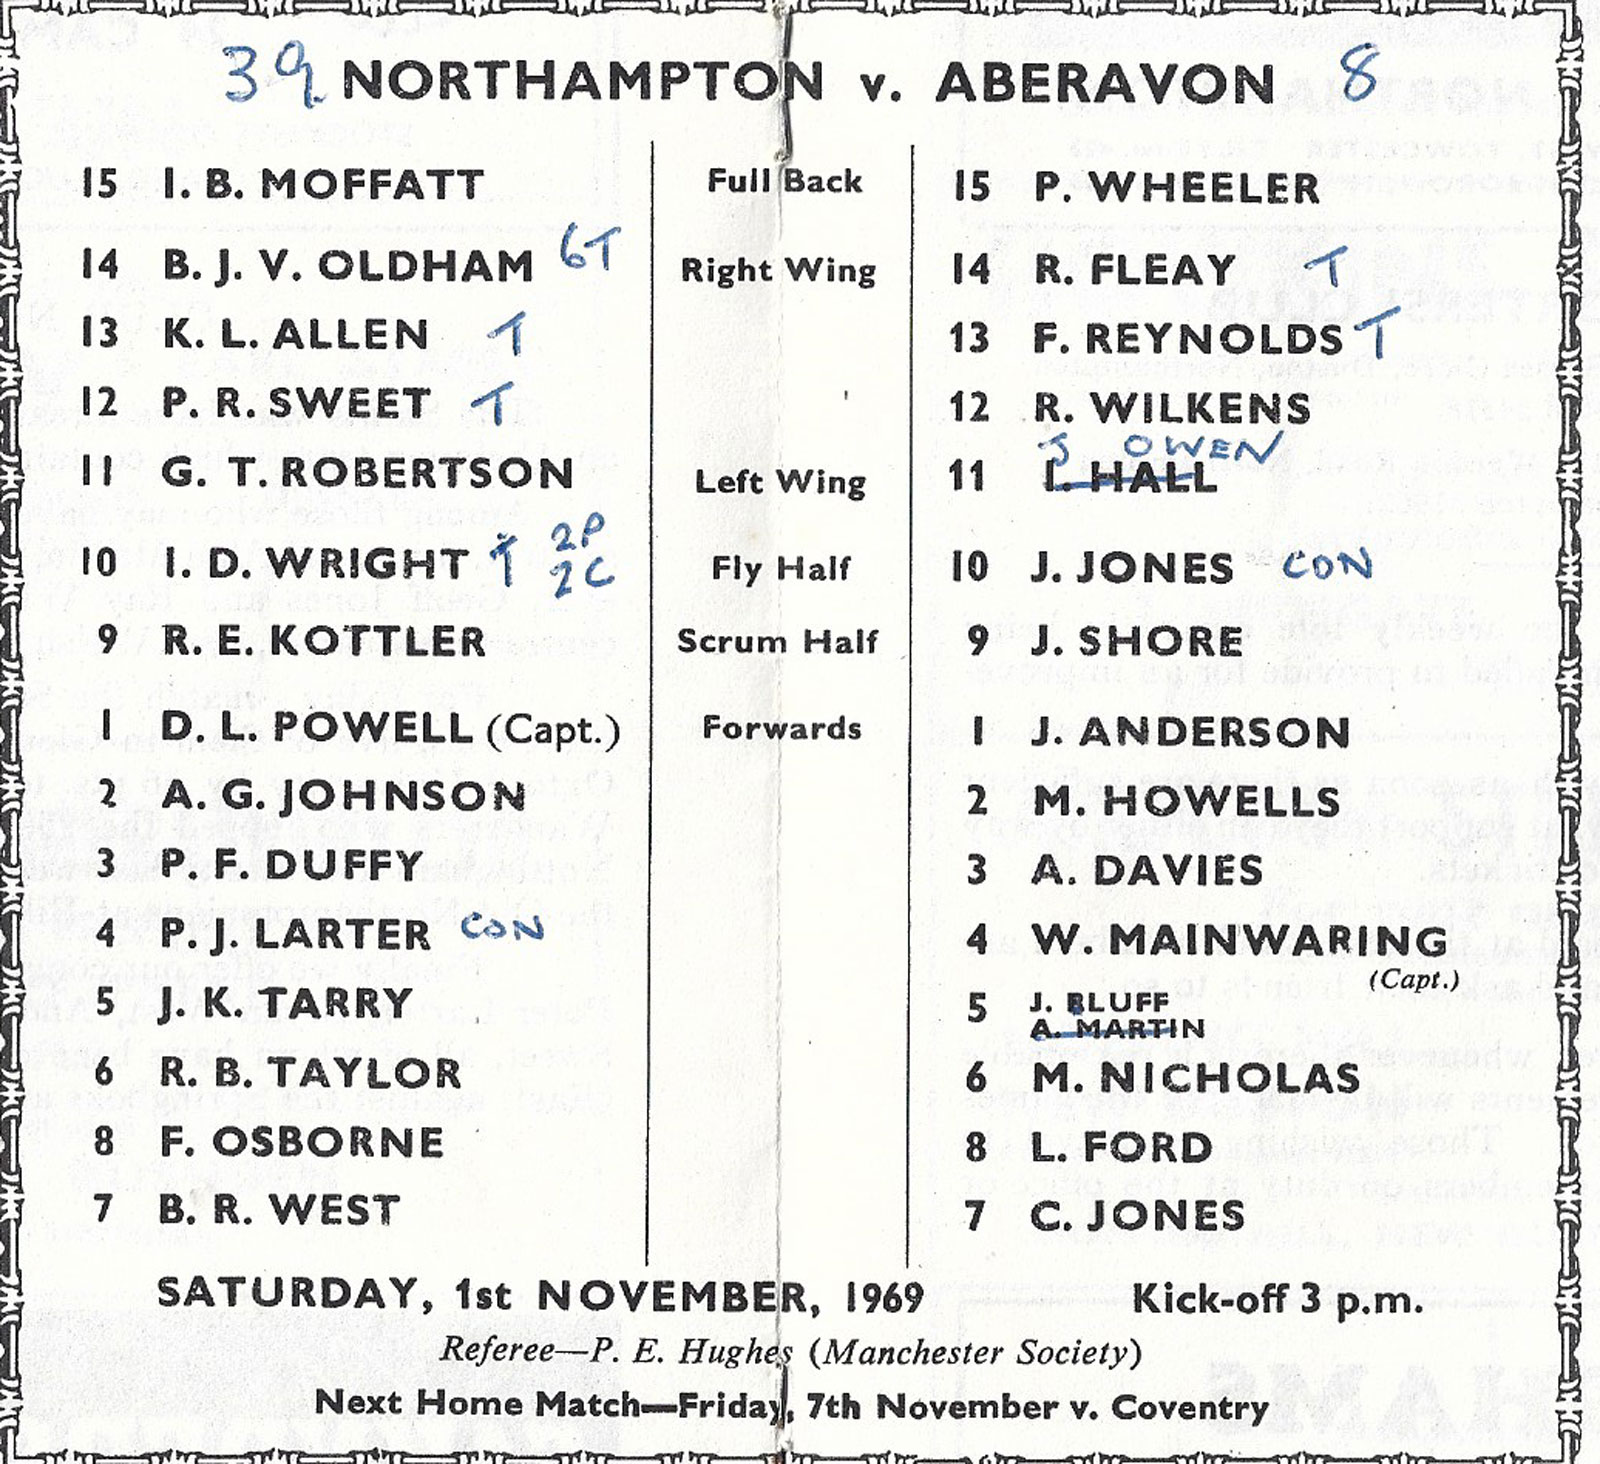 39 NORTHAMPTON v. ABERAVON 8
15 I. B. MOFFATT Full Back 15 P. WHEELER
14 B. J. V. OLDHAM 6T Right Wing 14 R. FLEAY T
13 K. L. ALLEN T 13 F. REYNOLDS T
12 P. R. SWEET T 12 R. WILKENS
J OWEN
11 G. T. ROBERTSON Left Wing 11 I. HALL
2P
10 I. D. WRIGHT T 2C Fly Half 10 J. JONES CON
9 R. E. KOTTLER Scrum Half 9 J. SHORE
1 D. L. POWELL (Capt.) Forwards 1 J. ANDERSON
2 A. G. JOHNSON 2 M. HOWELLS
3 P. F. DUFFY 3 A. DAVIES
4 P. J. LARTER CON 4 W. MAINWARING
(Capt.)
5 J. K. TARRY 5 J. BLUFF
A. MARTIN
6 R. B. TAYLOR 6 M. NICHOLAS
8 F. OSBORNE 8 L. FORD
7 B. R. WEST 7 C. JONES
SATURDAY, 1st NOVEMBER, 1969 Kick-off 3 p.m.
Referee—P. E. Hughes (Manchester Society)
Next Home Match—Friday, 7th November v. Coventry